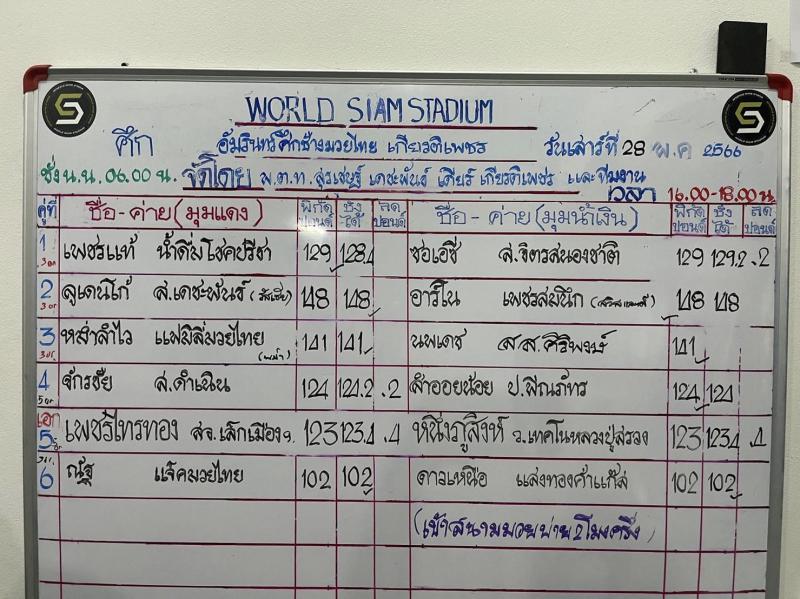 WORLD SIAM STADIUM
ศึก อัมรินทร์ศึกช้างมวยไทย เกียรติเพชร วันเสาร์ที่ 28 พ.ค 2566
ชั่ง น.น. 06.00 น. จัดโดย พ.ต.ท. สุรเชษฐ์ เดชะพันธ์ เกียร์ เกียรติเพชร และทีมงาน
เวลา 16.00-18.00 น.
คู่ที่ ชื่อ - ค่าย (มุมแดง) พิกัด ปอนด์ ชั่งได้ ลด ปอนด์ ชื่อ - ค่าย (มุมน้ำเงิน) พิกัด ปอนด์ ชั่งได้ ลด ปอนด์
1 3ยก เพชรแท้ น้ำดื่มโชคปรีชา 129 128.4 ชอเอซี ส.จิตรสนองชาติ 129 129.2 .2
2 3ยก ลูเดนโก้ ส.เดชะพันธ์ (รัสเซีย) 148 148 อาร์โน เพชรสมนึก 148 148
3 3ยก หล่ำลำไว แฟมิลี่มวยไทย (พม่า) 141 141 นพเดช ส.ส.ศิริพงษ์ 141
4 5ยก จักรชัย ส.ดำเนิน 124 124.2 .2 ลำออยน้อย ป.พีณภัทร 124 124
เอก 5 เพชรไทรทอง สจ.เล็กเมือง 123 123.4 .4 หนึ่งภูสิงห์ ว.เทคโนหลวงปู่สรวง 123 123.4 .4
3ยก 6 ณัฐ แจ็คมวยไทย 102 102 ดาวเหนือ แสงทองค้าแก๊ส 102 102
(เข้าสนามมวยบ่าย 2 โมงครึ่ง)